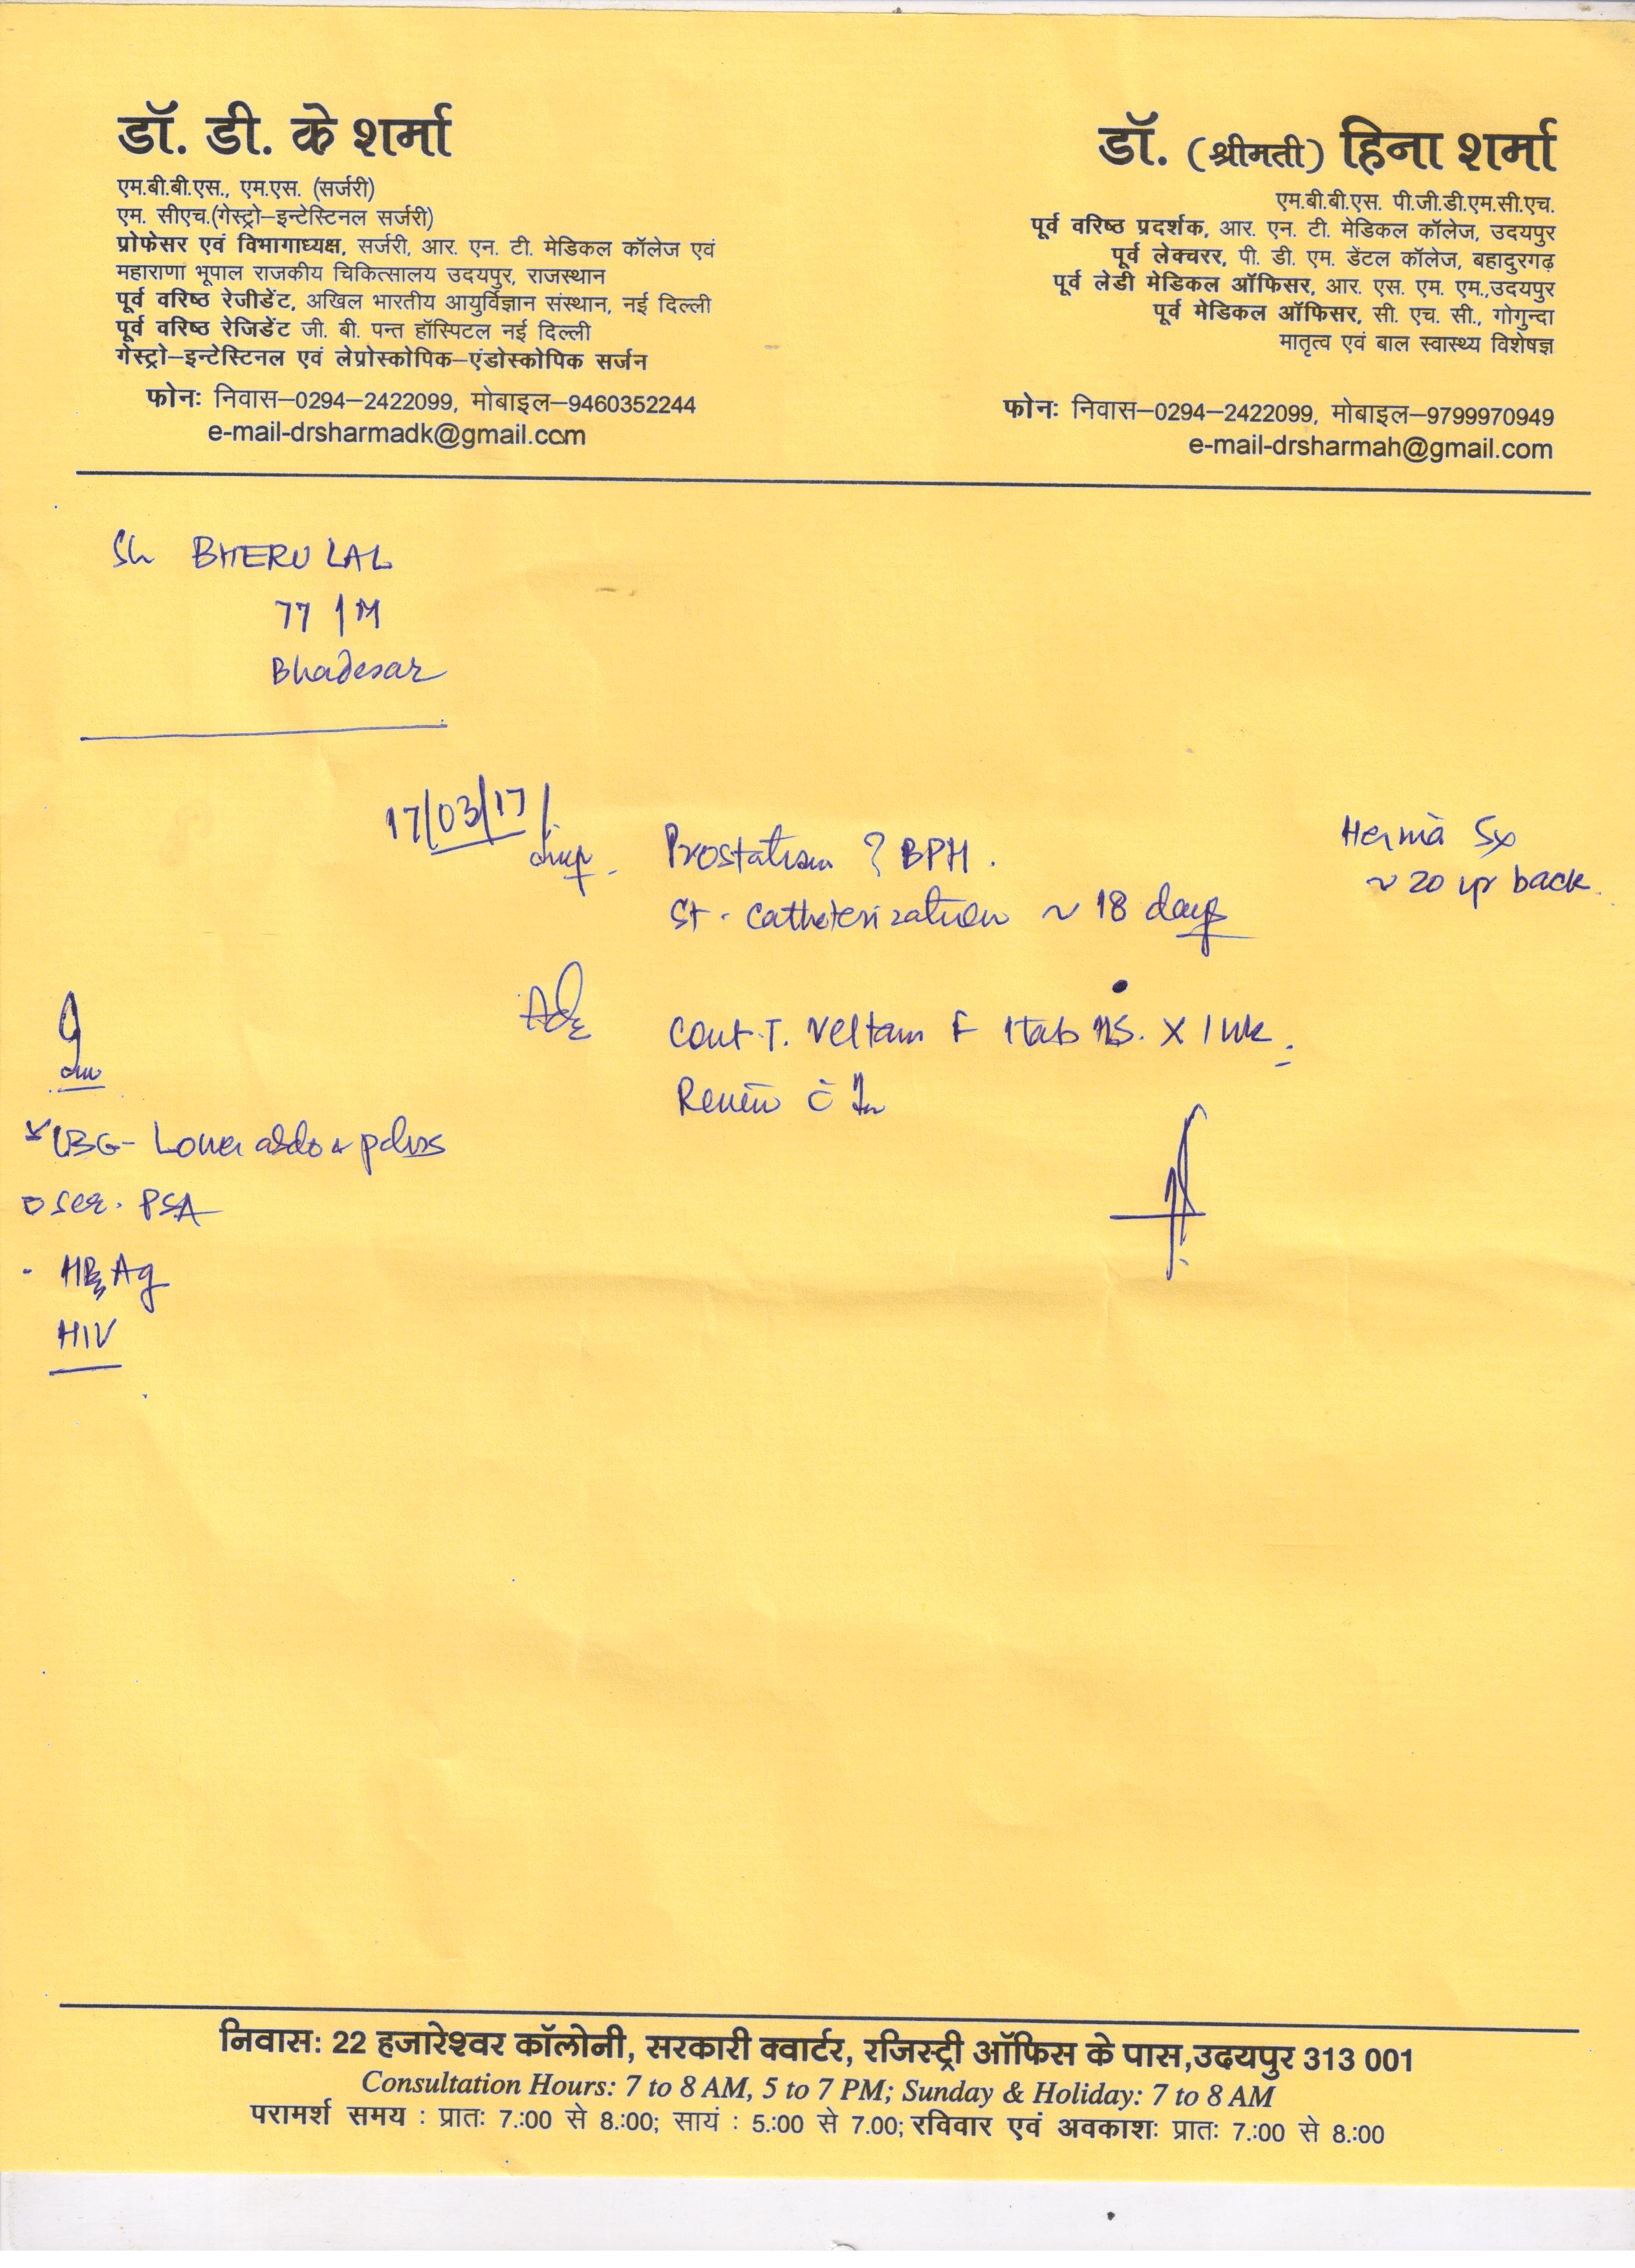 डॉ. डी. के शर्मा
एम.बी.बी.एस., एम.एस. (सर्जरी)
एम. सीएच.(गेस्ट्रो–इन्टेस्टिनल सर्जरी)
प्रोफेसर एवं विभागाध्यक्ष, सर्जरी, आर. एन. टी. मेडिकल कॉलेज एवं
महाराणा भूपाल राजकीय चिकित्सालय उदयपुर, राजस्थान
पूर्व वरिष्ठ रेजीडेंट, अखिल भारतीय आयुर्विज्ञान संस्थान, नई दिल्ली
पूर्व वरिष्ठ रेजिडेंट जी. बी. पन्त हॉस्पिटल नई दिल्ली
गेस्ट्रो–इन्टेस्टिनल एवं लेप्रोस्कोपिक–एंडोस्कोपिक सर्जन
फोनः निवास–0294–2422099, मोबाइल–9460352244
e-mail-drsharmadk@gmail.com
डॉ. (श्रीमती) हिना शर्मा
एम.बी.बी.एस. पी.जी.डी.एम.सी.एच.
पूर्व वरिष्ठ प्रदर्शक, आर. एन. टी. मेडिकल कॉलेज, उदयपुर
पूर्व लेक्चरर, पी. डी. एम. डेंटल कॉलेज, बहादुरगढ़
पूर्व लेडी मेडिकल ऑफिसर, आर. एस. एम. एम.,उदयपुर
पूर्व मेडिकल ऑफिसर, सी. एच. सी., गोगुन्दा
मातृत्व एवं बाल स्वास्थ्य विशेषज्ञ
फोनः निवास–0294–2422099, मोबाइल–9799970949
e-mail-drsharmah@gmail.com
Sh BHERU LAL
77 / M
Bhadesar
17/03/17
Prostatism ? BPH.
St. Catheterization ~ 18 days
Hernia Sx
~ 20 yr back.
Adv
Cont. T. Veltam F 1 tab HS. X 1 wk.
Review c̄
USG - Lower abdo & pelvis
Ser. PSA
HBsAg
HIV
निवास: 22 हजारेश्वर कॉलोनी, सरकारी क्वार्टर, रजिस्ट्री ऑफिस के पास,उदयपुर 313 001
Consultation Hours: 7 to 8 AM, 5 to 7 PM; Sunday & Holiday: 7 to 8 AM
परामर्श समय : प्रातः 7.:00 से 8.:00; सायं : 5.:00 से 7.00; रविवार एवं अवकाशः प्रातः 7.:00 से 8.:00